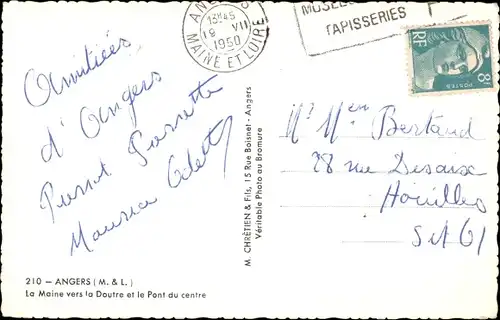 ANGERS
13H45
19 VII
1950
MAINE ET LOIRE
MUSÉE
TAPISSERIES
RF
POSTES
8F
Amitiés
d'Angers
Pierrot Pierrette
Maurice Odette
Mr Men Bertaud
28 rue Desaix
Houilles
S et O
M. CHRÉTIEN & Fils, 15 Rue Boisnet - Angers
Véritable Photo au Bromure
210 — ANGERS (M. & L.)
La Maine vers la Doutre et le Pont du centre